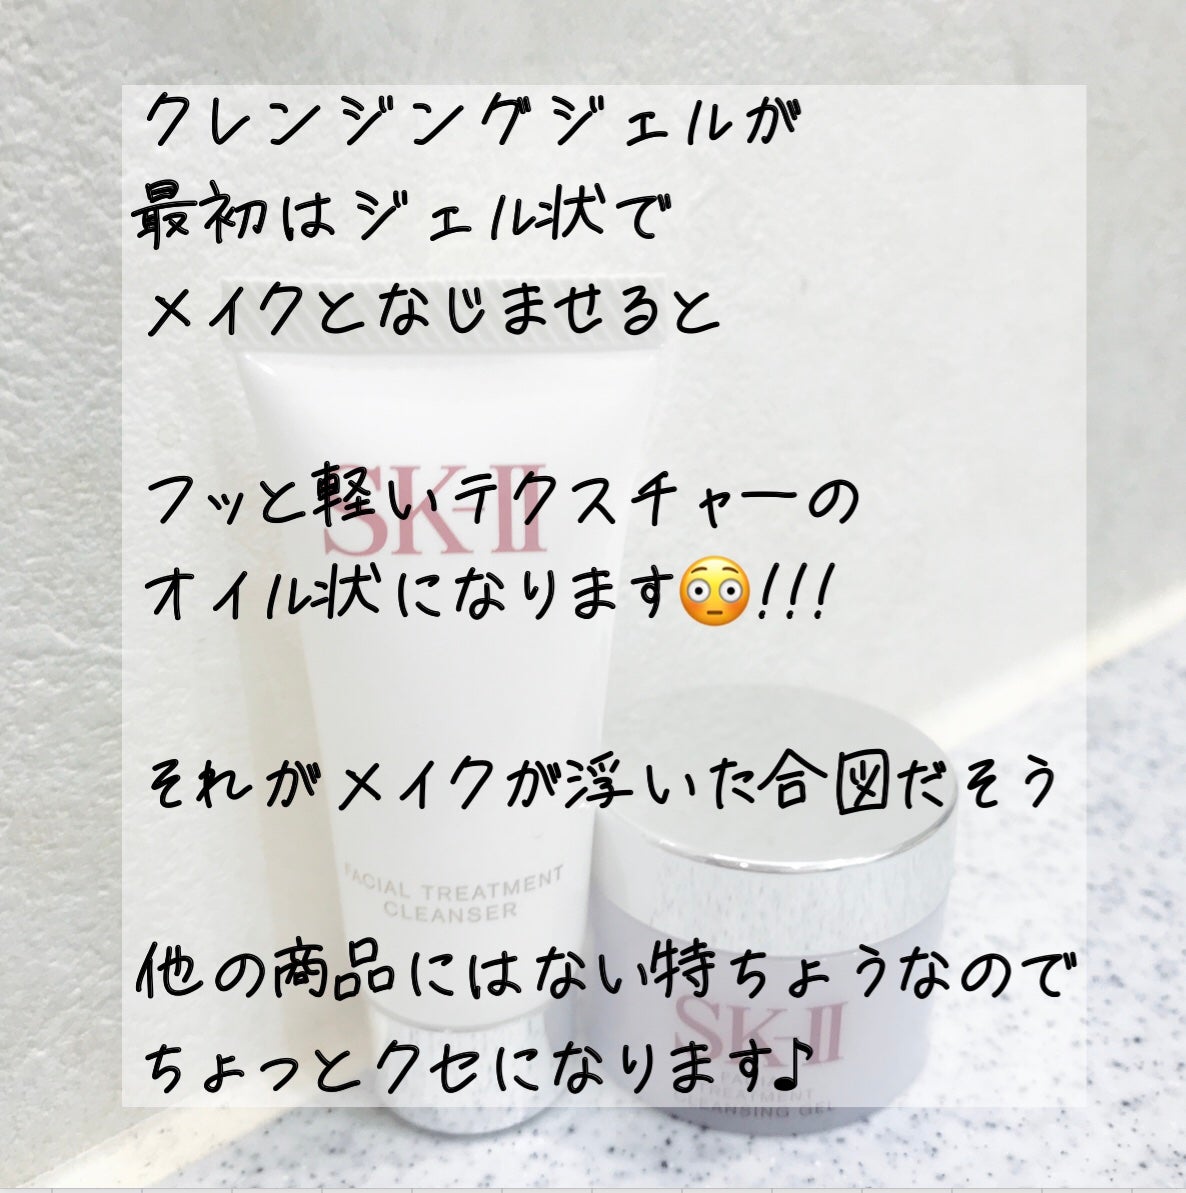 クレンジングジェルが
最初はジェル状で
メイクとなじませると
フッと軽いテクスチャーの
オイル状になります😳!!!
それがメイクが浮いた合図だそう
他の商品にはない特ちょうなので
ちょっとクセになります♪
SK-II
FACIAL TREATMENT
CLEANSER
SK-II
FACIAL
TREATMENT
CLEANSING GEL